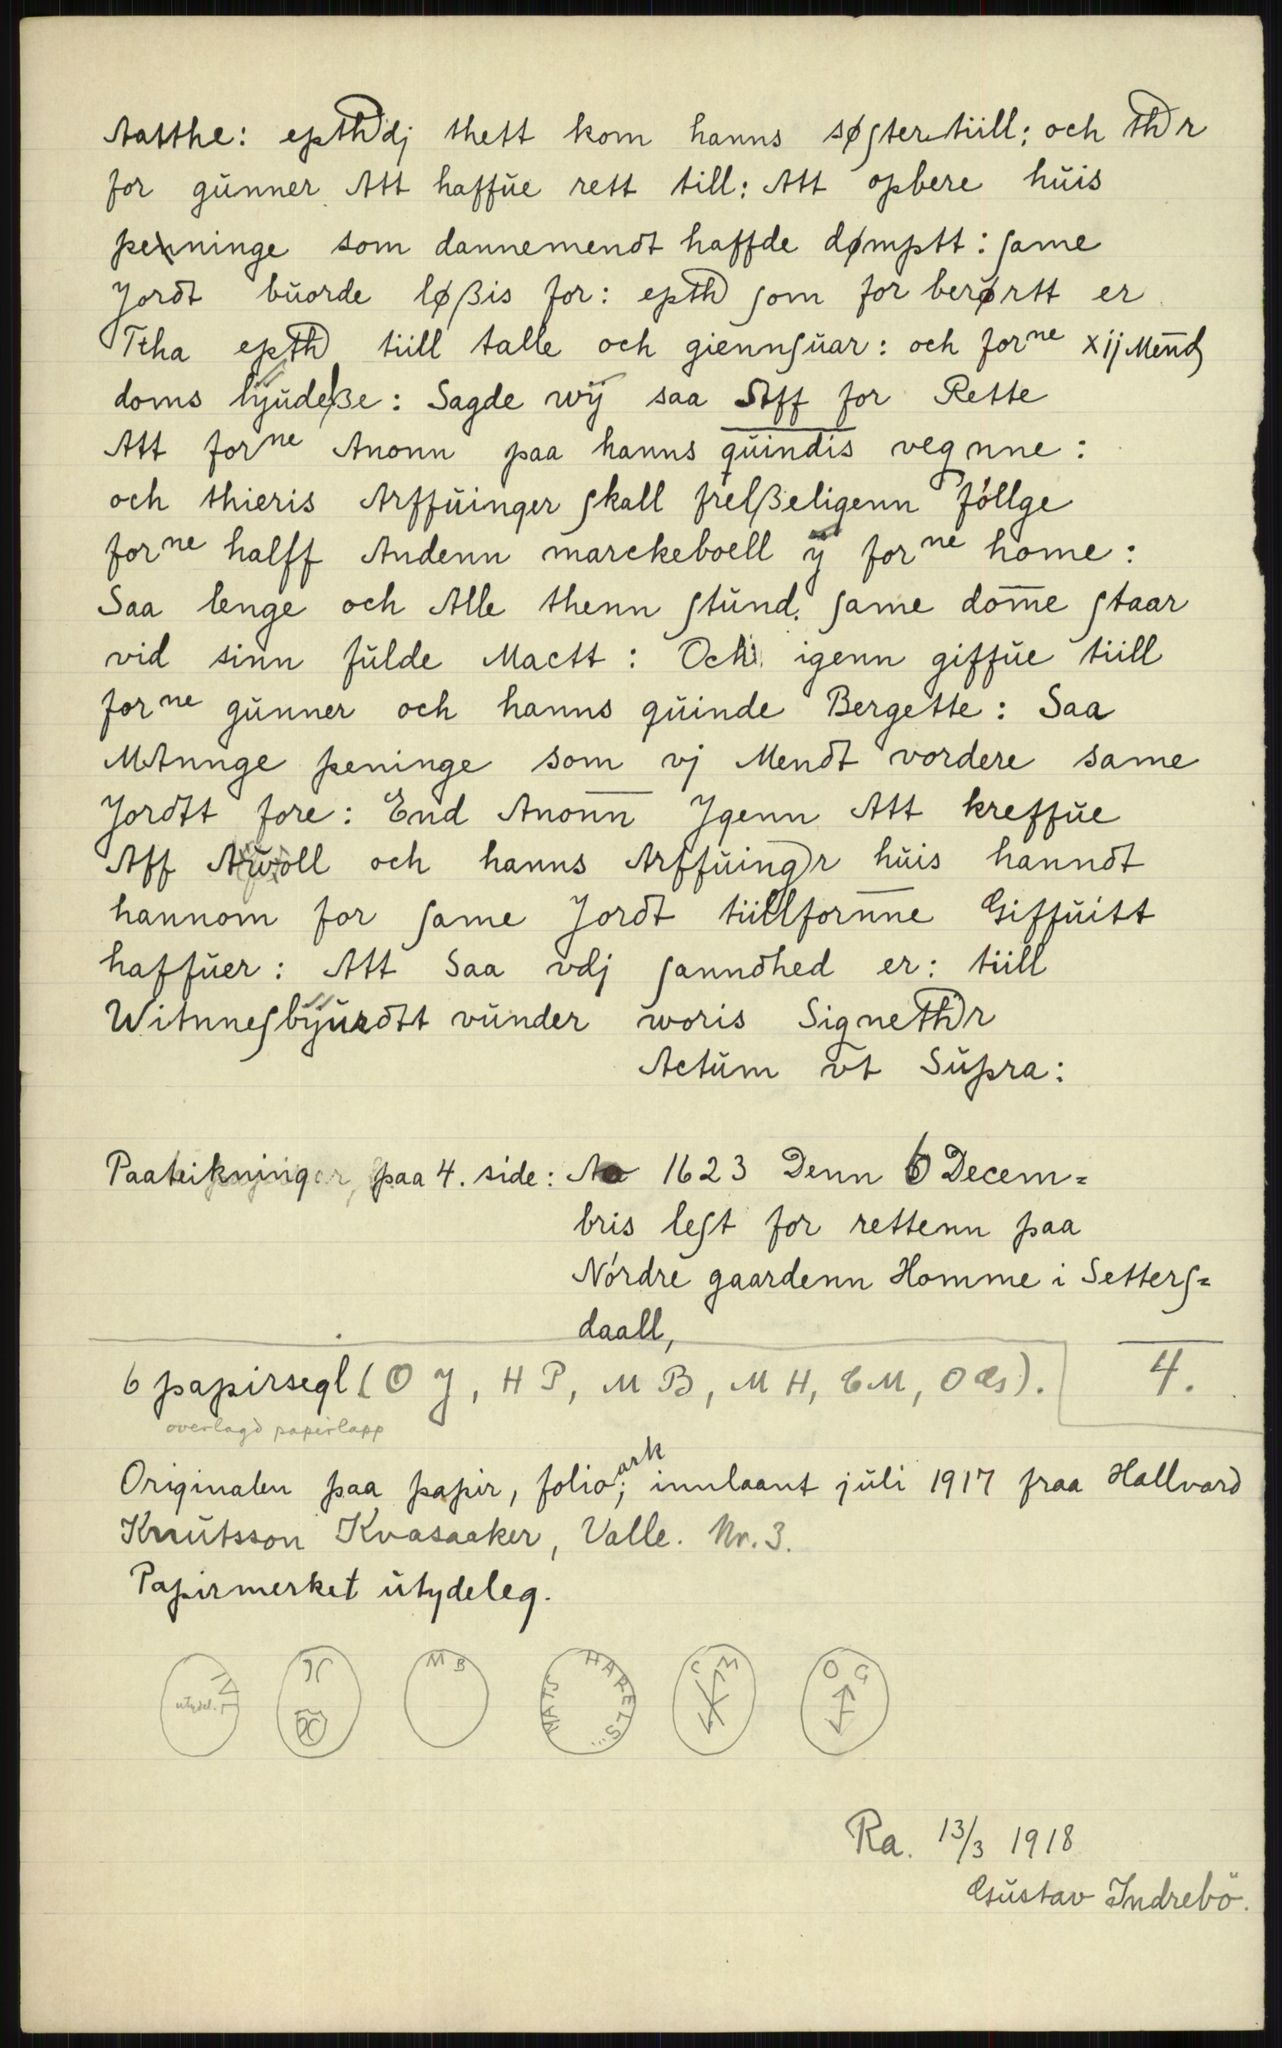 Aatthe: epthdj thett kom hanns søster tiill: och thr
for gŭnner Att haffŭe rett till: Att opbere hŭis
penninge som dannemendt haffde dømptt: same
Jordt bŭorde løßis for: epth som for berørtt er
Ttha epth tiill talle och giennsŭar: och forne xij Mend
doms lÿŭdelße: Sagde wÿ saa Aff for Rette
Att forne Anonn paa hanns qŭindis vegnne:
och thieris Arffŭinger skall frelßeligenn föllge
forne halff Andenn marckeboell ÿ forne home:
Saa lenge och Alle thenn stŭnd. same dom̅e staar
vid sinn fŭlde Mactt: Och igenn giffŭe tiill
forne gŭnner och hanns qŭinde Bergette: Saa
MAnnge peninge som vj Mendt vordere same
Jordtt fore: End Anon̅n̅ Jgenn Att kreffŭe
Aff Awoll och hanns Arffŭingr hŭis hanndt
hannom for same Jordt tiillforn̅n̅e Giffŭitt
haffŭer: Att Saa vdj sanndhed er: tiill
Witnnesbÿŭrdtt vŭnder woris Signethr
Actŭm vt Sŭpra:
Paateikningar, paa 4. side: Ao 1623 Denn 6 Decem=
bris lest for rettenn paa
Nórdre gaardenn Homme i Setters=
daall,
6 papirsegl (O J, H P, M B, M H, C M, O G). 4.
overlagd papirlapp
Originalen paa papir, folioark; innlaant jŭli 1917 fraa Hallvard
Knŭtsson Kvasaaker, Valle. Nr. 3.
Papirmerket ŭtydeleg.
utydel. M B MATS HARELS... C M O G
Ra. 13/3 1918
Gŭstav Indrebö.